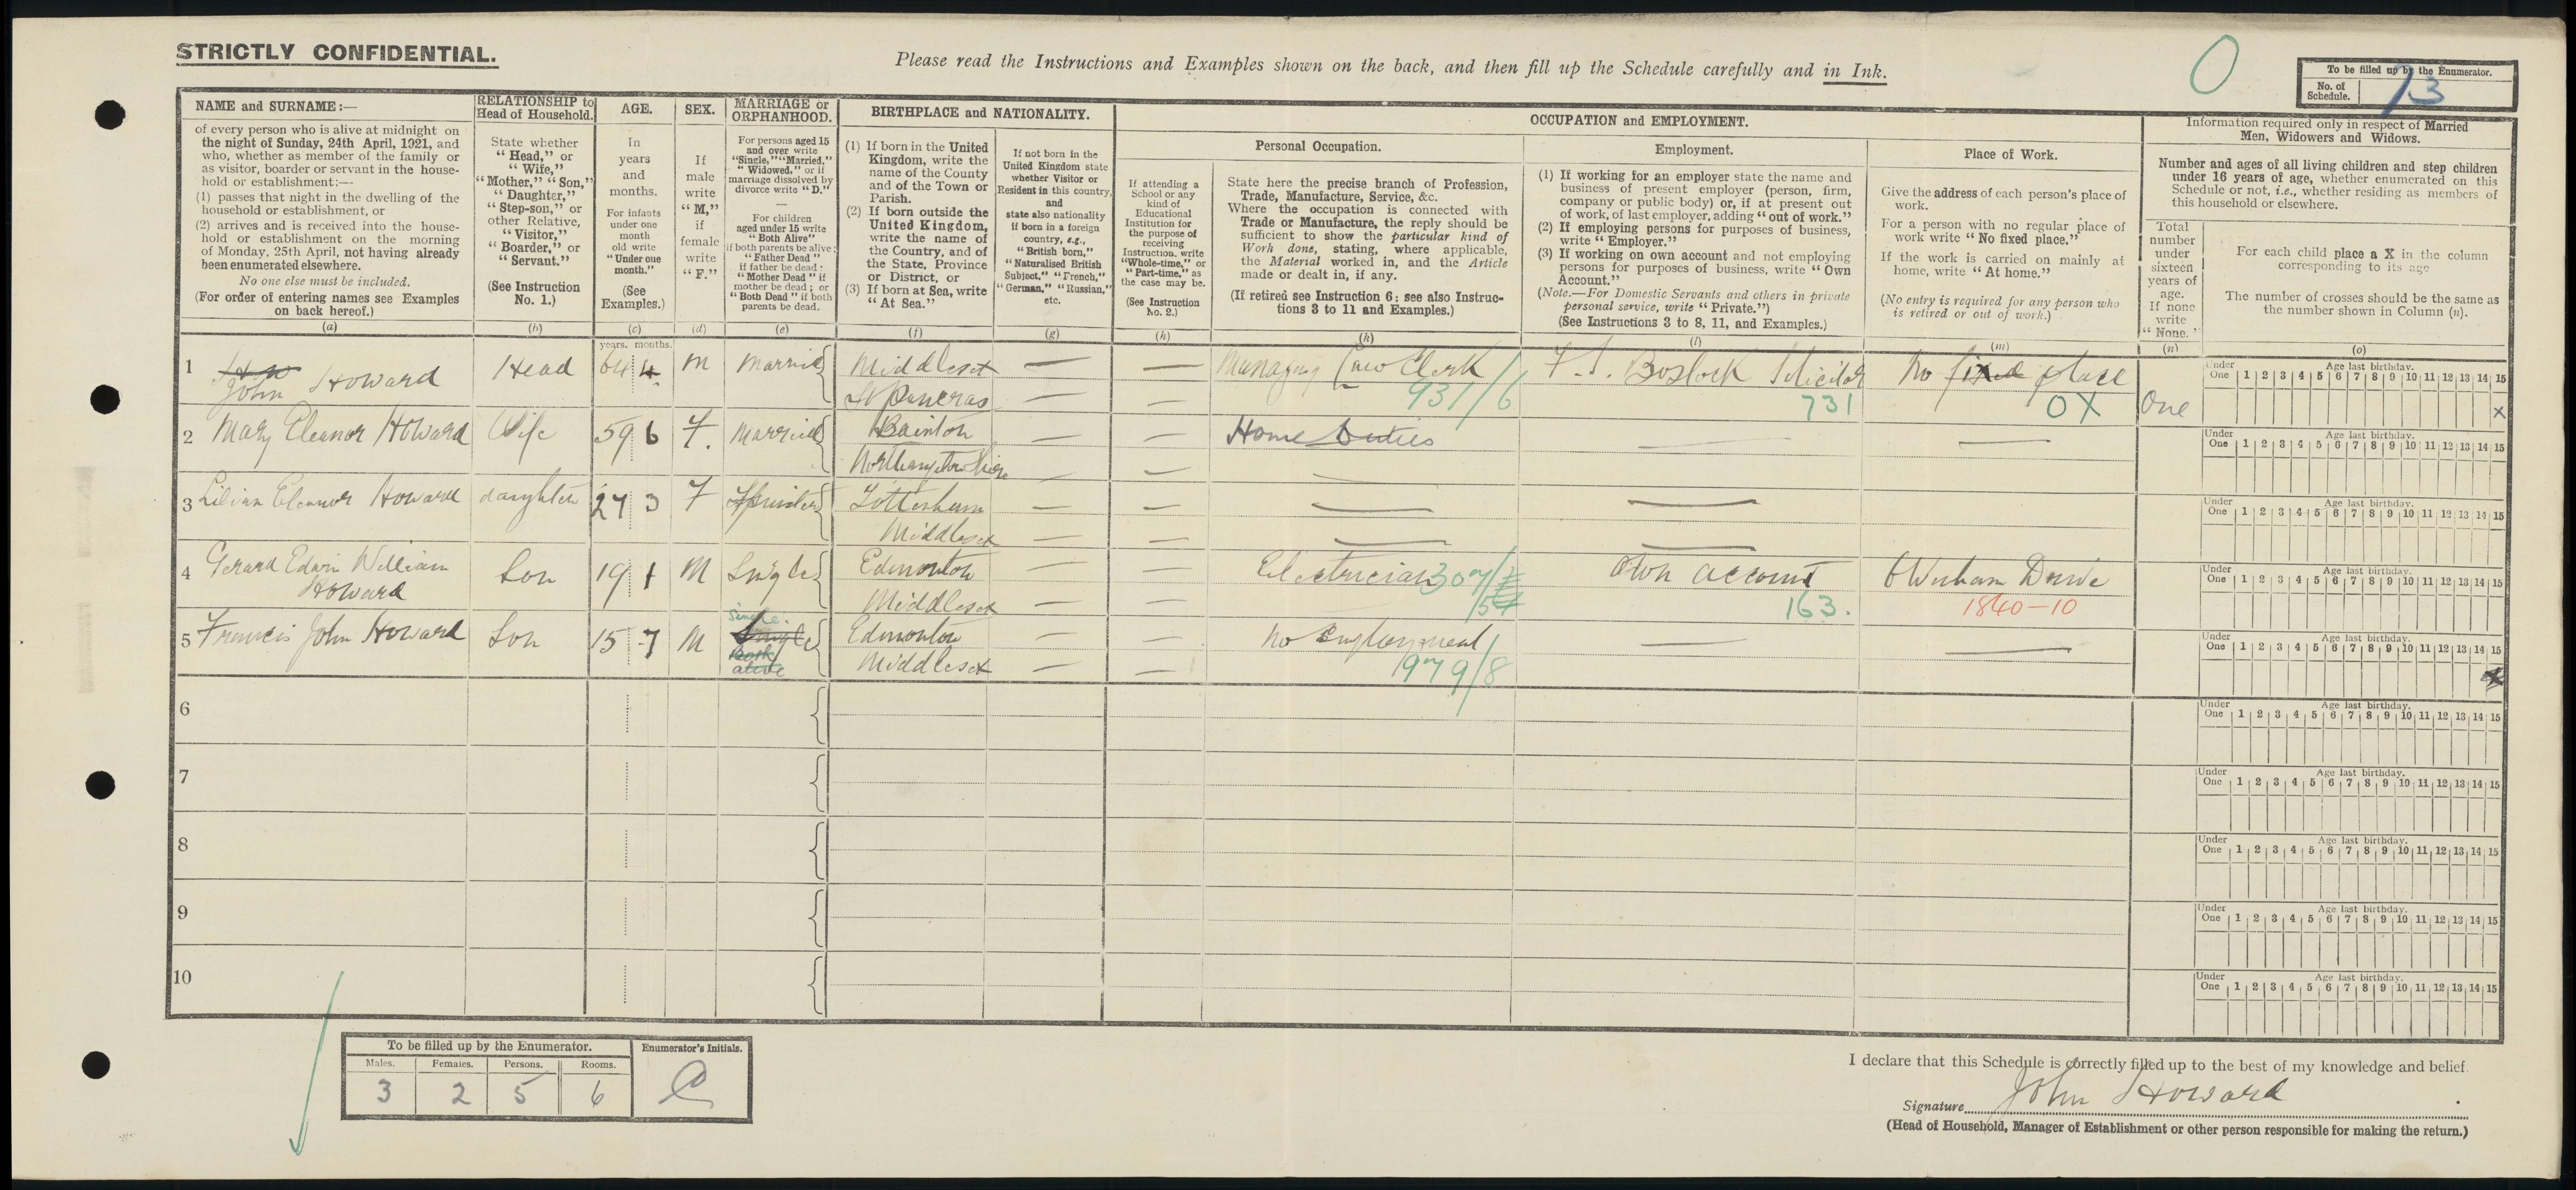 STRICTLY CONFIDENTIAL.
Please read the Instructions and Examples shown on the back, and then fill up the Schedule carefully and in Ink.
0
To be filled up by the Enumerator.
No. of Schedule. 73
NAME and SURNAME:—
of every person who is alive at midnight on
the night of Sunday, 24th April, 1921, and
who, whether as member of the family or
as visitor, boarder or servant in the house-
hold or establishment:—
(1) passes that night in the dwelling of the
household or establishment, or
(2) arrives and is received into the house-
hold or establishment on the morning
of Monday, 25th April, not having already
been enumerated elsewhere.
No one else must be included.
(For order of entering names see Examples
on back hereof.)
(a)
RELATIONSHIP to
Head of Household.
State whether
"Head," or
"Wife,"
"Mother," "Son,"
"Daughter,"
"Step-son," or
other Relative,
"Visitor,"
"Boarder," or
"Servant."
(See Instruction
No. 1.)
(b)
AGE.
In
years
and
months.
For infants
under one
month
old write
"Under one
month."
(See
Examples.)
(c)
SEX.
If
male
write
"M,"
if
female
write
"F."
(d)
MARRIAGE or
ORPHANHOOD.
For persons aged 15
and over write
"Single," "Married,"
"Widowed," or if
marriage dissolved by
divorce write "D."
—
For children
aged under 15 write
"Both Alive"
if both parents be alive;
"Father Dead"
if father be dead;
"Mother Dead" if
mother be dead; or
"Both Dead" if both
parents be dead.
(e)
BIRTHPLACE and NATIONALITY.
(1) If born in the United
Kingdom, write the
name of the County
and of the Town or
Parish.
(2) If born outside the
United Kingdom,
write the name of
the Country, and of
the State, Province
or District, or
(3) If born at Sea, write
"At Sea."
(f)
If not born in the
United Kingdom state
whether Visitor or
Resident in this country,
and
state also nationality
if born in a foreign
country, e.g.,
"British born,"
"Naturalised British
Subject," "French,"
"German," "Russian,"
etc.
(g)
OCCUPATION and EMPLOYMENT.
If attending a
School or any
kind of
Educational
Institution for
the purpose of
receiving
Instruction, write
"Whole-time," or
"Part-time," as
the case may be.
(See Instruction
No. 2.)
(h)
Personal Occupation.
State here the precise branch of Profession,
Trade, Manufacture, Service, &c.
Where the occupation is connected with
Trade or Manufacture, the reply should be
sufficient to show the particular kind of
Work done, stating, where applicable,
the Material worked in, and the Article
made or dealt in, if any.
(If retired see Instruction 6; see also Instruc-
tions 3 to 11 and Examples.)
(k)
Employment.
(1) If working for an employer state the name and
business of present employer (person, firm,
company or public body) or, if at present out
of work, of last employer, adding "out of work."
(2) If employing persons for purposes of business,
write "Employer."
(3) If working on own account and not employing
persons for purposes of business, write "Own
Account."
(Note.—For Domestic Servants and others in private
personal service, write "Private.")
(See Instructions 3 to 8, 11, and Examples.)
(l)
Place of Work.
Give the address of each person's place of
work.
For a person with no regular place of
work write "No fixed place."
If the work is carried on mainly at
home, write "At home."
(No entry is required for any person who
is retired or out of work.)
(m)
Information required only in respect of Married
Men, Widowers and Widows.
Number and ages of all living children and step children
under 16 years of age, whether enumerated on this
Schedule or not, i.e., whether residing as members of
this household or elsewhere.
Total
number
under
sixteen
years of
age.
If none
write
"None."
(n)
For each child place a X in the column
corresponding to its age
The number of crosses should be the same as
the number shown in Column (n).
(o)
years. months.
1 John Howard Head 64 4 M Married Middlesex — — Managing Law Clerk F. J. Bostock Solicitor No fixed place One
St Pancras — — 931/6 731 OX
Under One 1 2 3 4 5 6 7 8 9 10 11 12 13 14 15
Age last birthday.
X
2 Mary Eleanor Howard Wife 59 6 F. Married Bainton — — Home Duties — —
Northamptonshire — —
Under One 1 2 3 4 5 6 7 8 9 10 11 12 13 14 15
Age last birthday.
3 Lilian Eleanor Howard daughter 27 3 F Spinster Tottenham — — — —
Middlesex — — — —
Under One 1 2 3 4 5 6 7 8 9 10 11 12 13 14 15
Age last birthday.
4 Gerard Edwin William Howard Son 19 1 M Single Edmonton — — Electrician 307/ Own account 6 Wenham Drive
Middlesex — — 163. 1840-10
Under One 1 2 3 4 5 6 7 8 9 10 11 12 13 14 15
Age last birthday.
5 Francis John Howard Son 15 7 M Single. Single Both alive Edmonton — — No Employment — —
Middlesex — — 979/8
Under One 1 2 3 4 5 6 7 8 9 10 11 12 13 14 15
Age last birthday.
X
6
Under One 1 2 3 4 5 6 7 8 9 10 11 12 13 14 15
Age last birthday.
7
Under One 1 2 3 4 5 6 7 8 9 10 11 12 13 14 15
Age last birthday.
8
Under One 1 2 3 4 5 6 7 8 9 10 11 12 13 14 15
Age last birthday.
9
Under One 1 2 3 4 5 6 7 8 9 10 11 12 13 14 15
Age last birthday.
10
Under One 1 2 3 4 5 6 7 8 9 10 11 12 13 14 15
Age last birthday.
To be filled up by the Enumerator.
Enumerator's Initials.
Males. Females. Persons. Rooms.
3 2 5 6
I declare that this Schedule is correctly filled up to the best of my knowledge and belief.
Signature John Howard
(Head of Household, Manager of Establishment or other person responsible for making the return.)